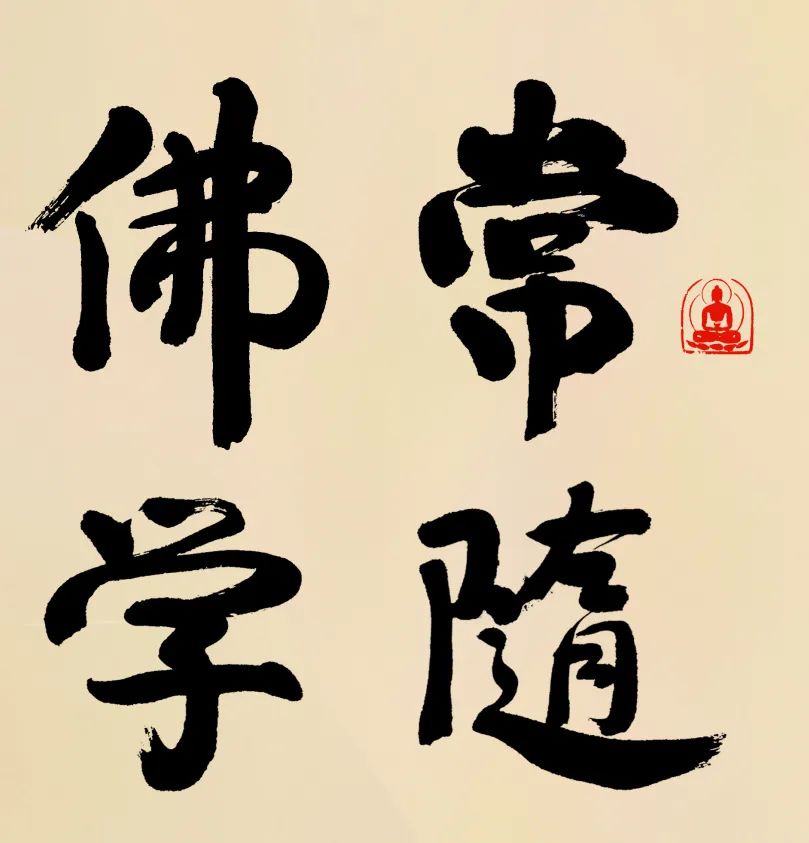 常隨
佛学